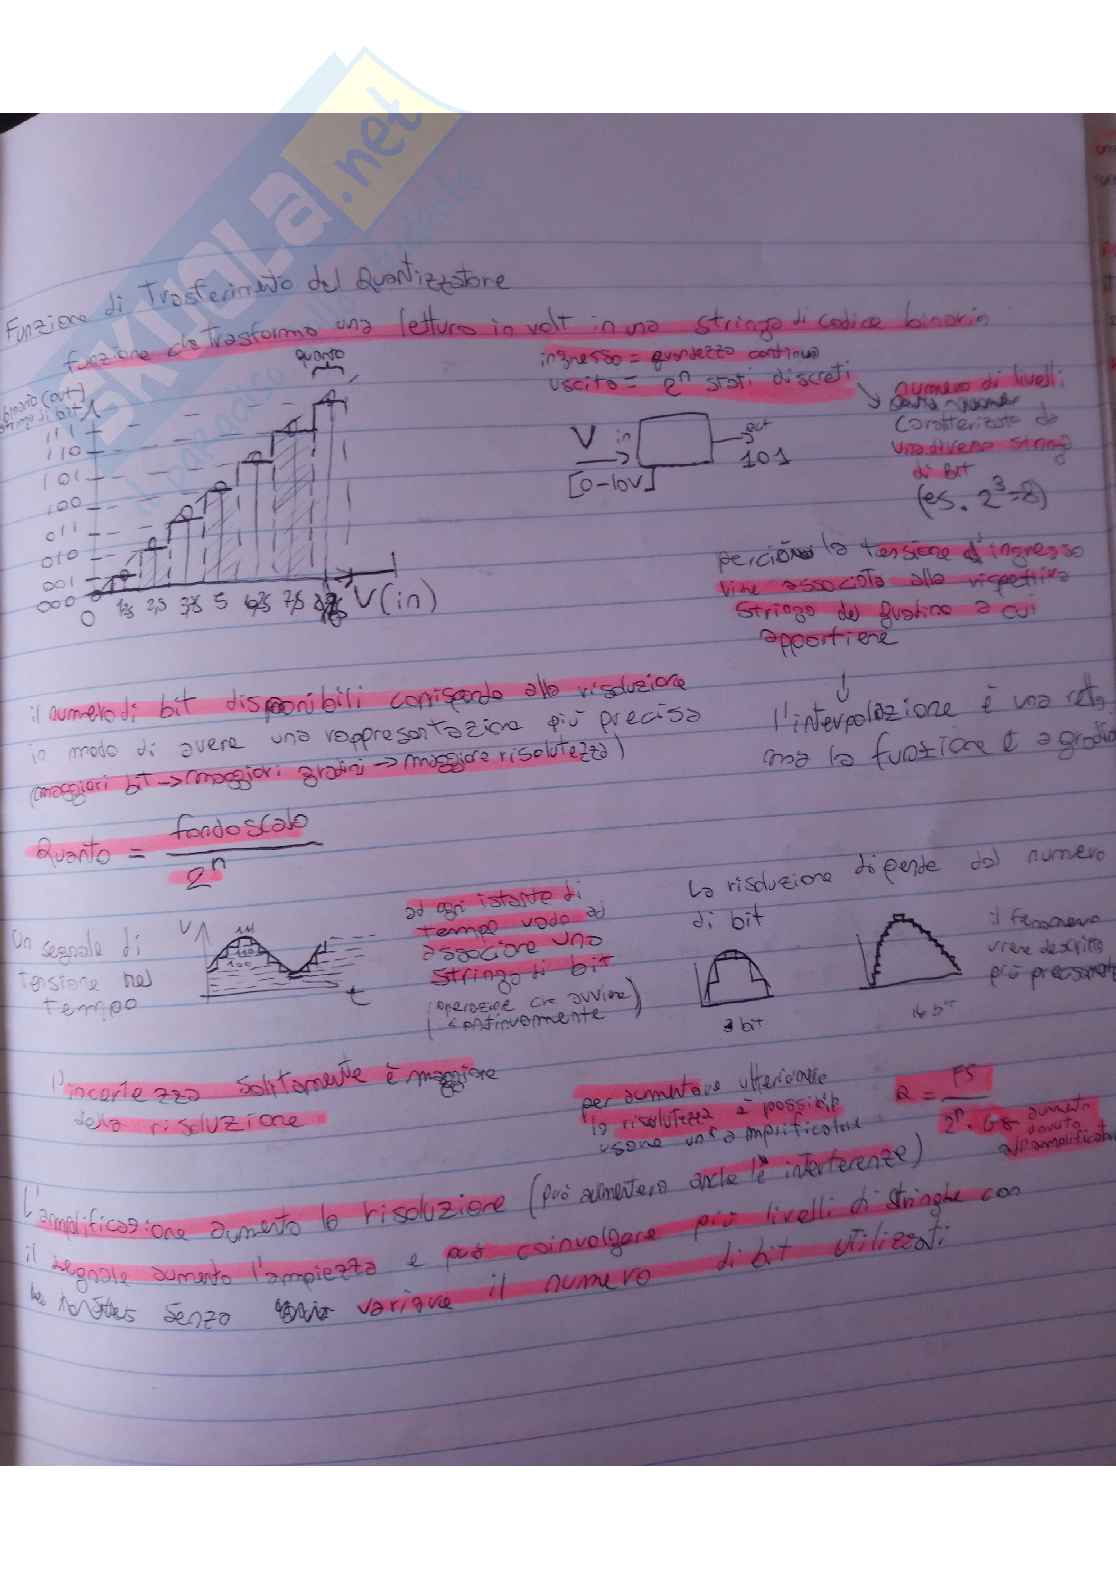 SKUOLA.net
Funzione di Trasferimento del Quantizzatore
funzione che trasforma una lettura in volt in una stringa di codice binario
quanto
binario (out)
stringa di bit
111
110
101
100
011
010
001
000
0 1,25 2,5 3,75 5 6,25 7,5 V(in)
ingresso = grandezza continua
uscita = 2^n stati discreti
V in out
[0-10V] 101
numero di livelli
caratterizzato da
una diversa stringa
di Bit
(es. 2^3=8)
perciò la tensione d'ingresso
viene associata alla rispettiva
stringa del gradino a cui
appartiene
↓
l'interpolazione è una retta
ma la funzione è a gradini
il numero di bit disponibili corrisponde alla risoluzione
in modo di avere una rappresentazione più precisa
(maggiori bit → maggiori gradini → maggiore risolutezza)
Quanto = fondoscala / 2^n
Un segnale di
tensione nel
tempo
V
111
110
100
t
ad ogni istante di
tempo vado ad
associare una
stringa di bit
(operazione che avviene
continuamente)
La risoluzione dipende dal numero
di bit
3 bit
16 bit
il fenomeno
viene descritto
più precisamente
l'incertezza solitamente è maggiore
della risoluzione
per aumentare ulteriormente
la risolutezza è possibile
usare un amplificatore
R = FS / 2^n · G
aumento
dovuto
all'amplificatore
L'amplificazione aumenta la risoluzione (può aumentare anche le interferenze)
il segnale aumenta l'ampiezza e può coinvolgere più livelli di stringhe con
senza variare il numero di bit utilizzati